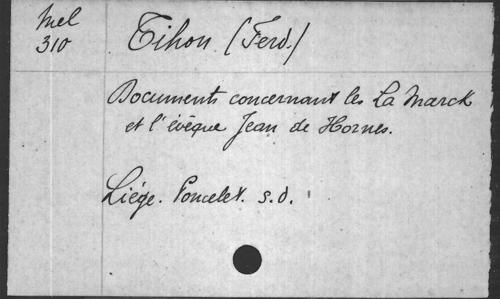 Mel
310
Tihon (Ferd.)
Documents concernant les La Marck
et l'évêque Jean de Hornes.
Liége. Poncelet. s.d.